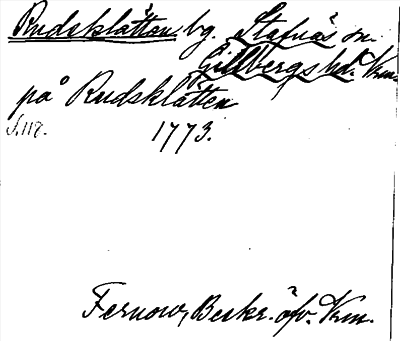 Rudsklätten bg. Stafnäs sn.
Gillbergs hd. Krm.
på Rudsklätten
S. 118. 1773.
Fernow, Beskr. öfv. Vrm.